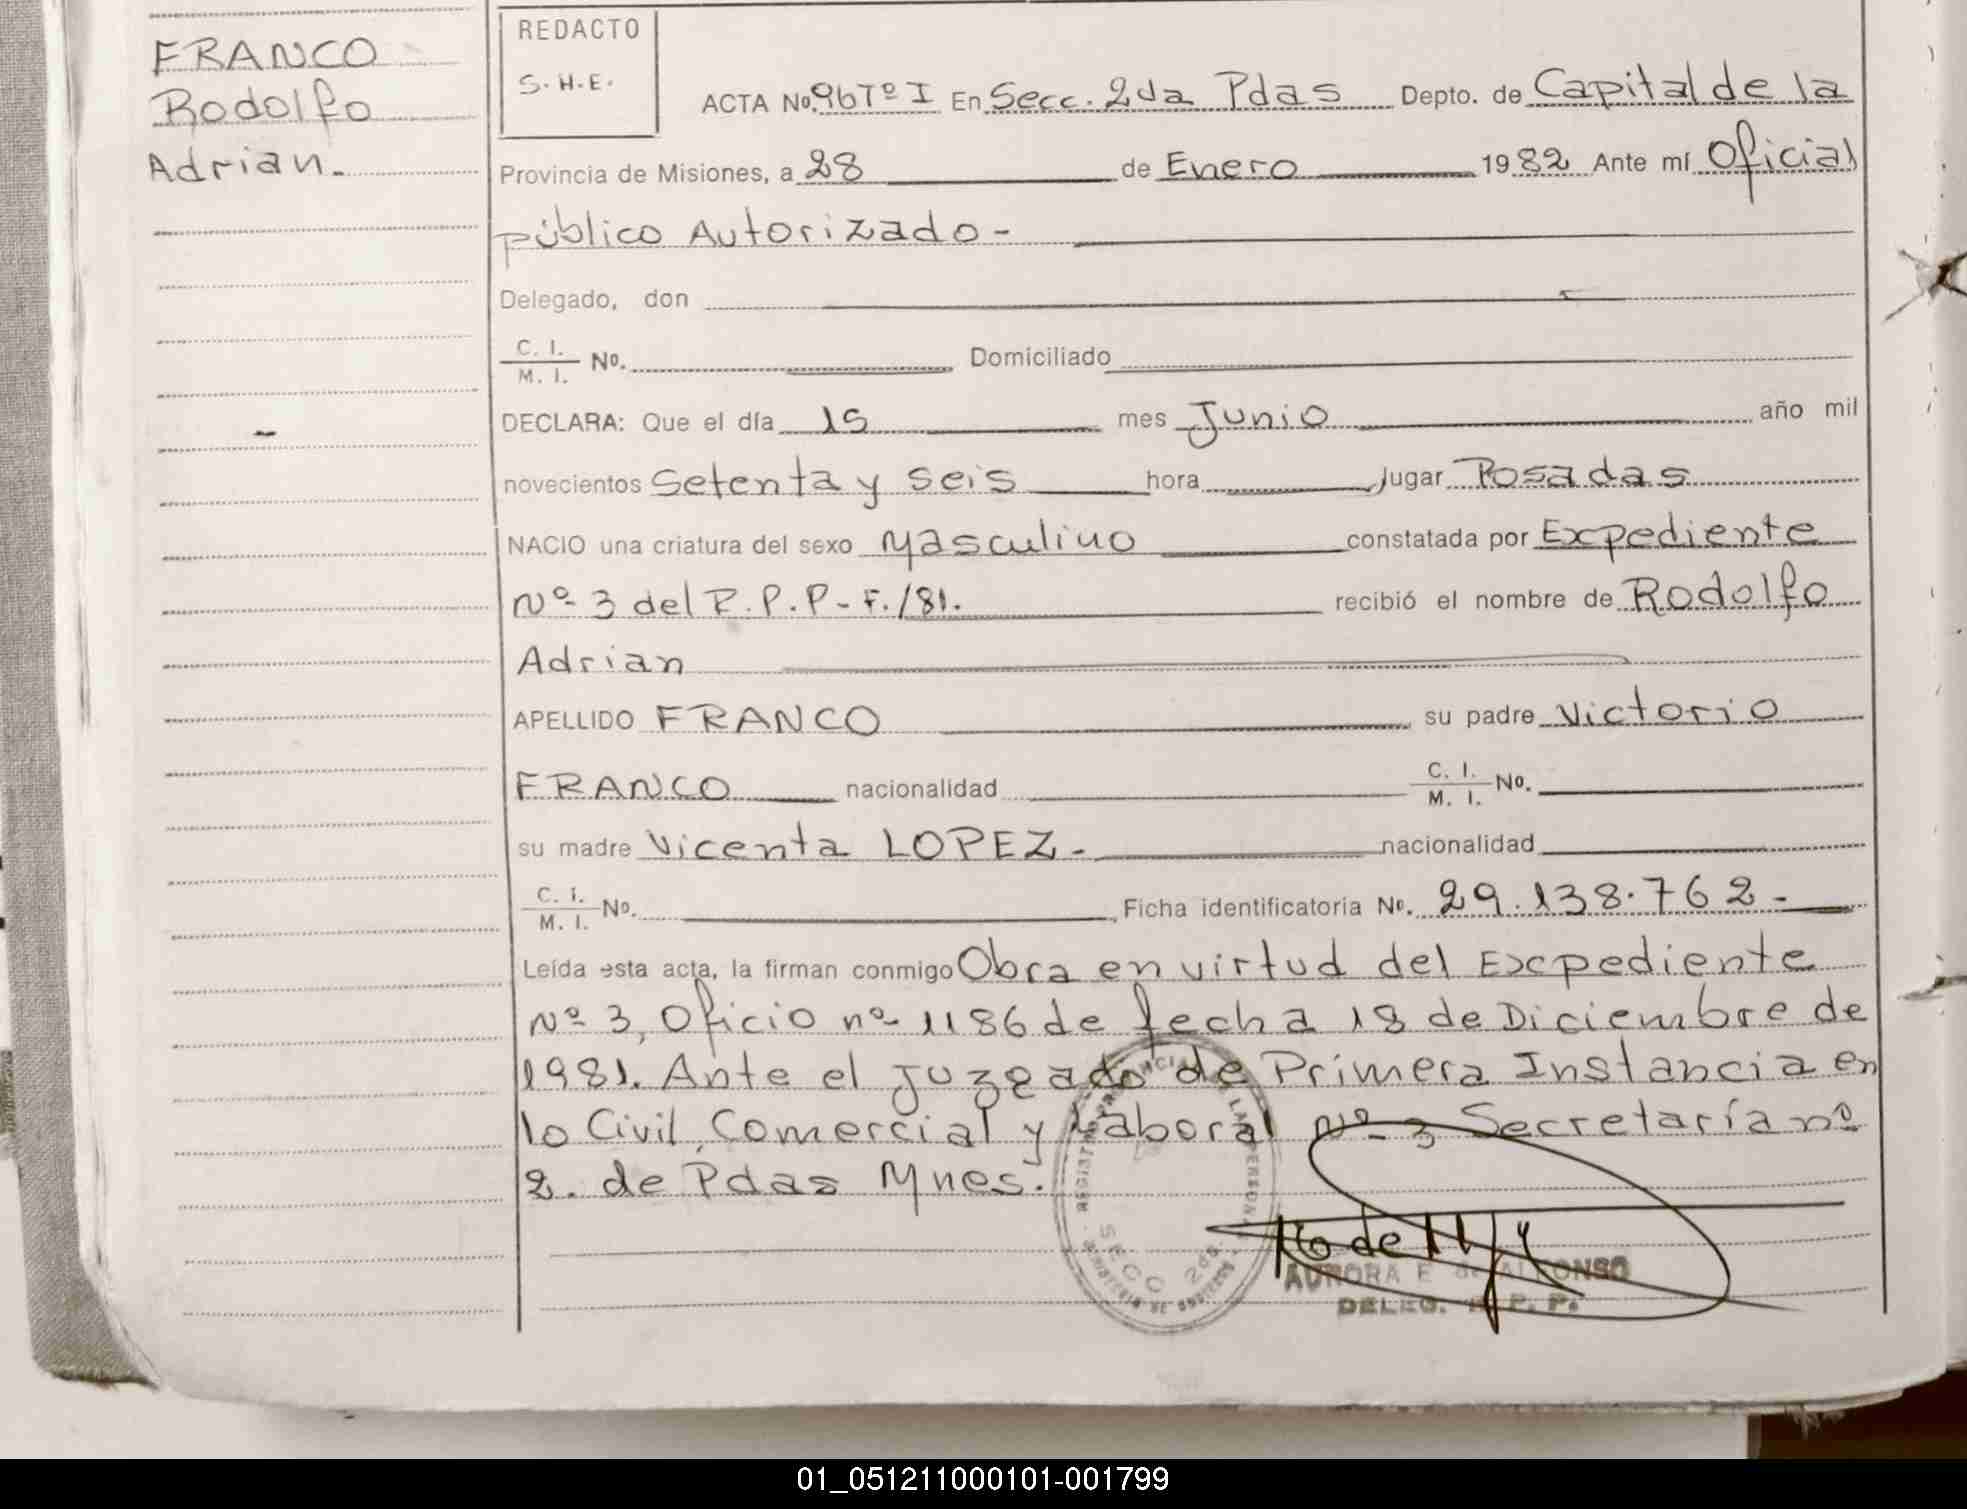 FRANCO
Rodolfo
Adrian.
REDACTO
S.H.E.
ACTA No. 96 Tº I En Secc. 2da Pdas Depto. de Capital de la
Provincia de Misiones, a 28 de Enero 1982 Ante mí Oficial
público Autorizado -
Delegado, don
C. I.
M. I. No. Domiciliado
DECLARA: Que el día 15 mes Junio año mil
novecientos Setenta y seis hora lugar Posadas
NACIO una criatura del sexo Masculino constatada por Expediente
Nº 3 del R.P.P-F./81. recibió el nombre de Rodolfo
Adrian
APELLIDO FRANCO su padre Victorio
FRANCO nacionalidad C. I.
M. I. No.
su madre Vicenta LOPEZ. nacionalidad
C. I.
M. I. No. Ficha identificatoria No. 29.138.762-
Leída esta acta, la firman conmigo Obra en virtud del Expediente
Nº 3, Oficio nº 1186 de fecha 18 de Diciembre de
1981. Ante el Juzgado de Primera Instancia en
lo Civil, Comercial y Laboral Nº 3 Secretaría nº
2. de Pdas Mnes.
SECC 2da.
AURORA E de ALFONSO
DELEG. R. P. P.
01_051211000101-001799